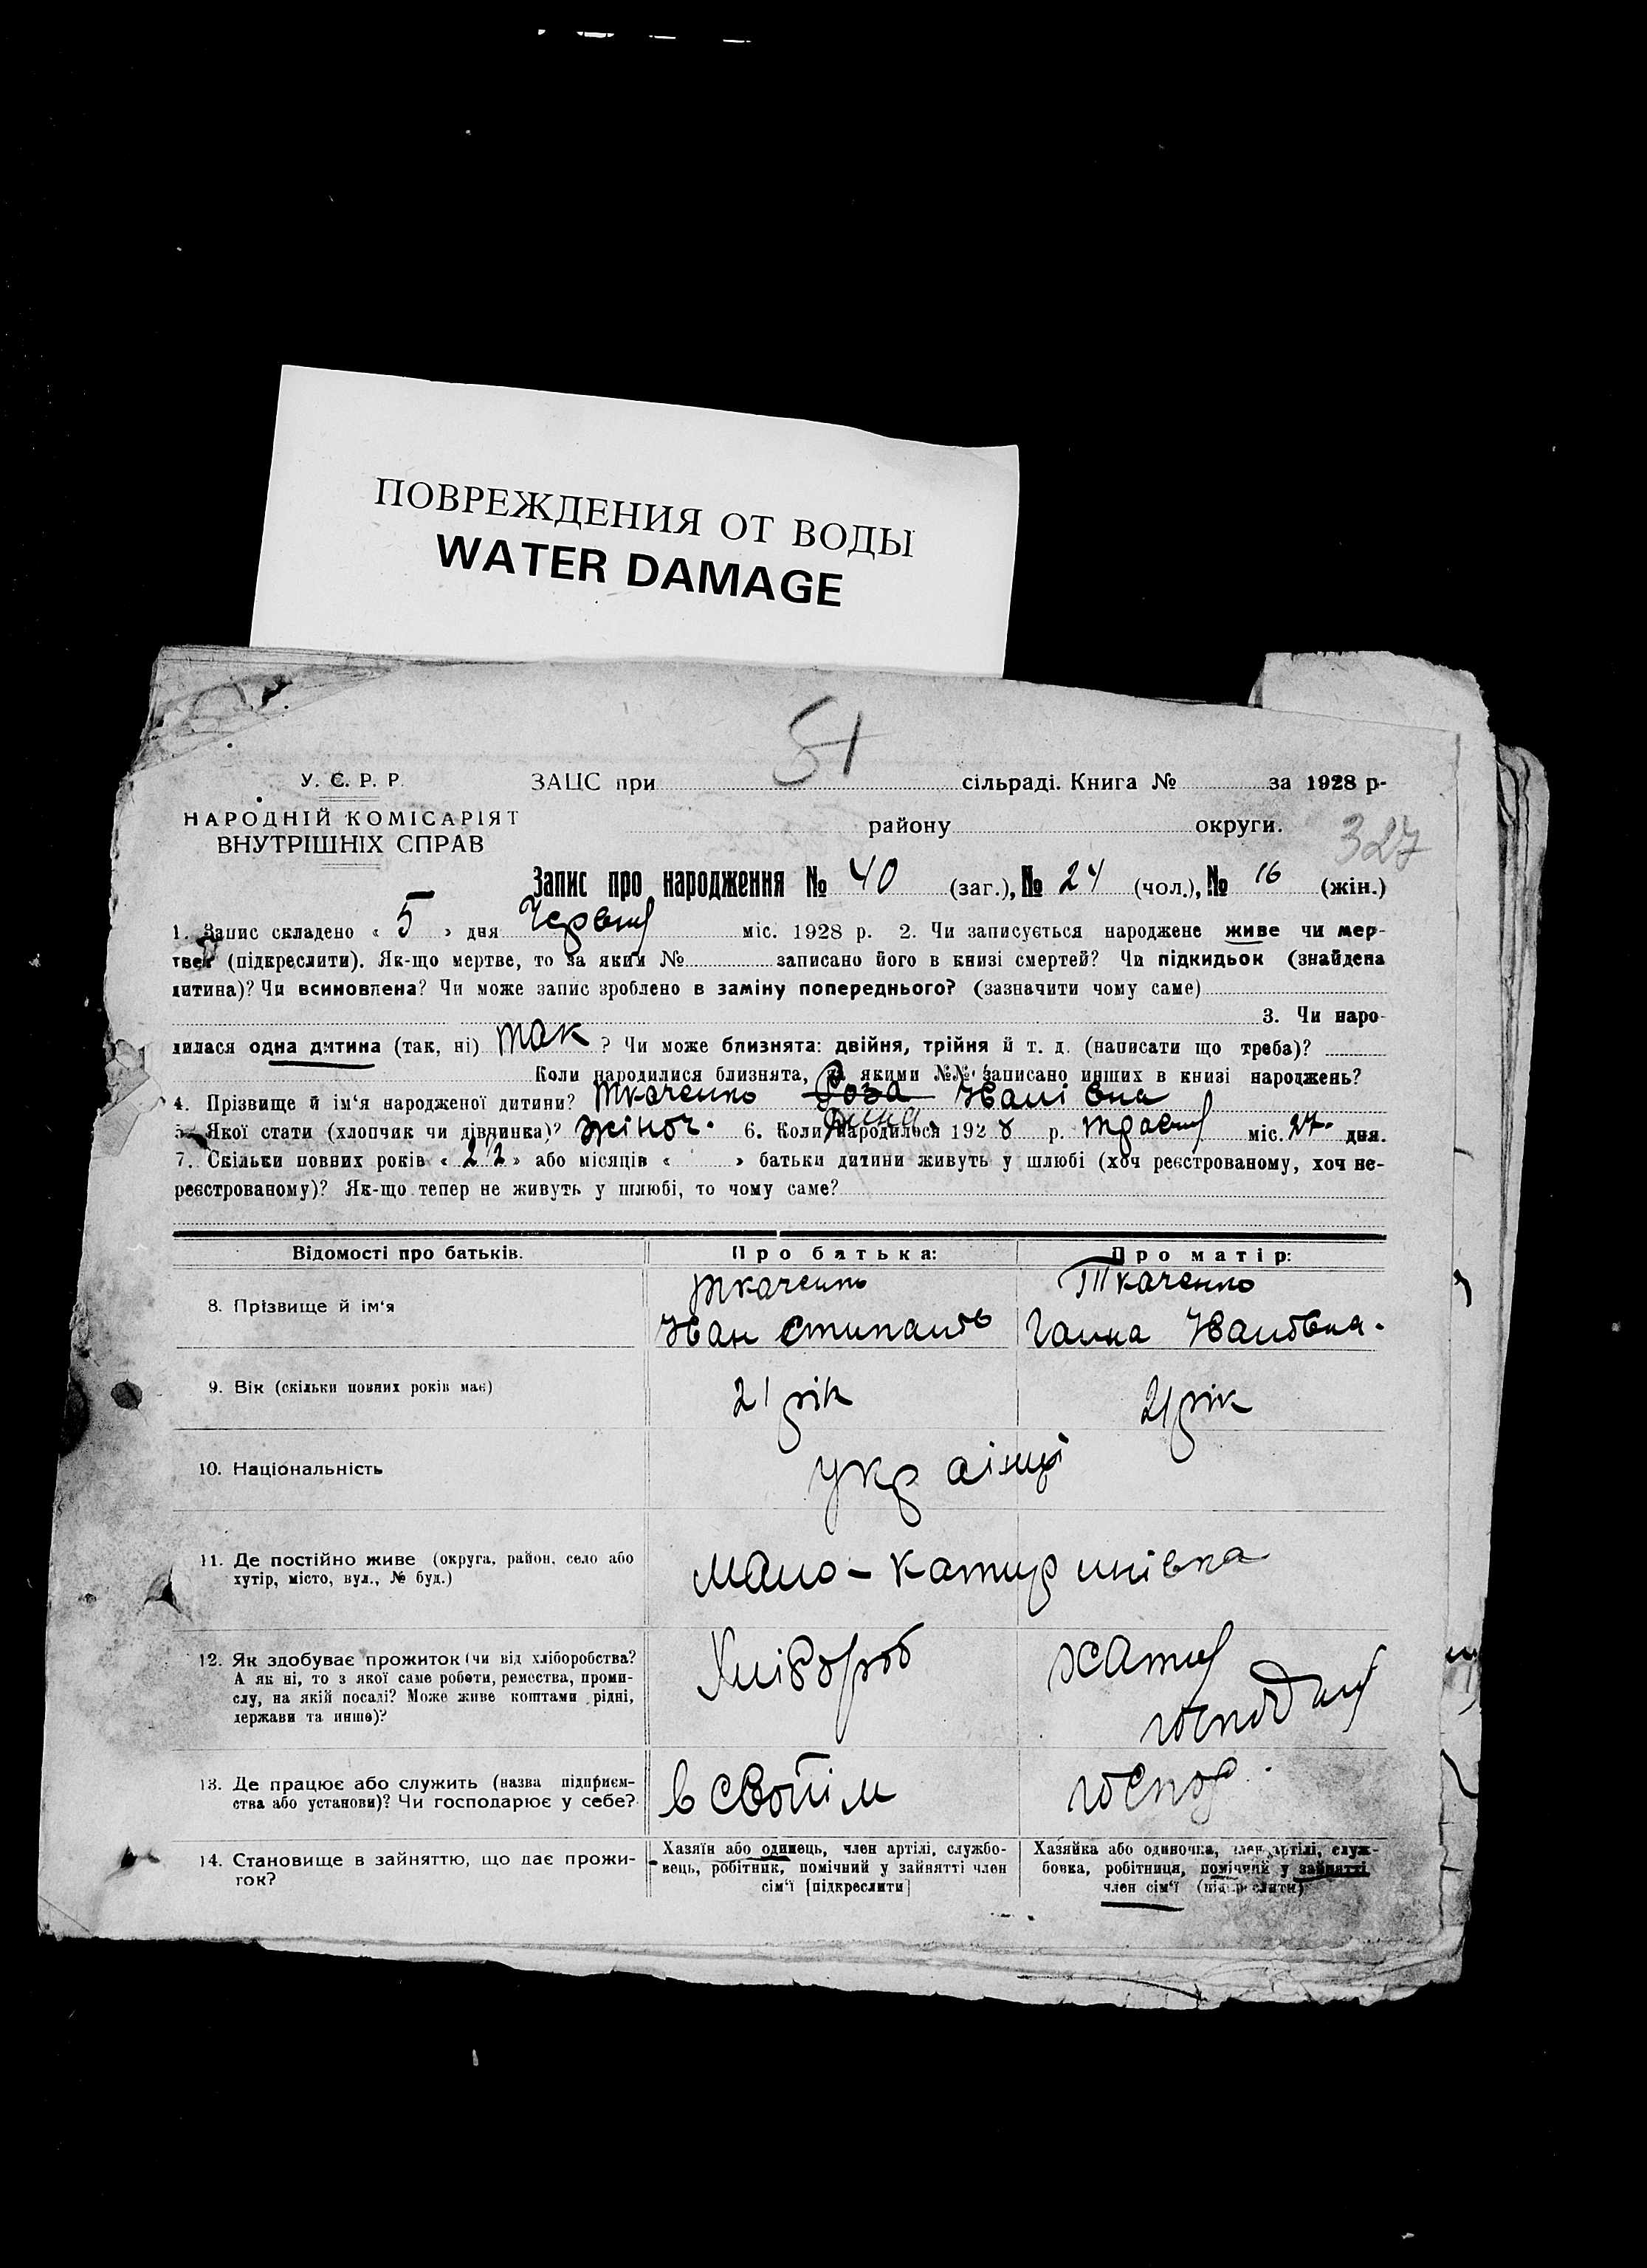 ПОВРЕЖДЕНИЯ ОТ ВОДЫ
WATER DAMAGE
51
У. С. Р. Р. ЗАЦС при сільраді. Книга № за 1928 р-
НАРОДНІЙ КОМІСАРІЯТ району округи.
ВНУТРІШНІХ СПРАВ 327
Запис про народження № 40 (заг.), № 24 (чол.), № 16 (жін.)
1. Запис складено « 5 » дня Червня міс. 1928 р. 2. Чи записується народжене живе чи мер-
тве (підкреслити). Як-що мертве, то за яким № записано його в книзі смертей? Чи підкидьок (знайдена
дитина)? Чи всиновлена? Чи може запис зроблено в заміну попереднього? (зазначити чому саме)
3. Чи наро-
дилася одна дитина (так, ні) так ? Чи може близнята: двійня, трійня й т. д. (написати що треба)?
Коли народилися близнята, за якими №№ записано инших в книзі народжень?
4. Прізвище й ім‘я народженої дитини? Ткаченко Роза Іванівна
5. Якої стати (хлопчик чи дівчинка)? жіноч. 6. Коли народилося 1928 р. травня міс. 27 дня.
7. Скільки повних років « 2 1/2 » або місяців « » батьки дитини живуть у шлюбі (хоч реєстрованому, хоч не-
реєстрованому)? Як-що тепер не живуть у шлюбі, то чому саме?
Відомості про батьків. Про батька: Про матір:
8. Прізвище й ім‘я Ткаченко Ткаченко
Іван Ганна Івановна.
9. Вік (скільки повних років має) 21 рік 21 рік
10. Національність українці
11. Де постійно живе (округа, район, село або
хутір, місто, вул., № буд.) мало-катиринівка
12. Як здобуває прожиток (чи від хліборобства?
А як ні, то з якої саме роботи, ремества, проми-
слу, на якій посаді? Може живе коштами рідні,
держави та инше)?
Хлібороб хатня
господиня
13. Де працює або служить (назва підприєм-
ства або установи)? Чи господарює у себе?
в своїм господ.
14. Становище в зайняттю, що дає прожи-
ток?
Хазяїн або одинець, член артілі, службо-
вець, робітник, помічний у зайнятті член
сім‘ї [підкреслити]
Хазяйка або одиночка, член артілі, служ-
бовка, робітниця, помічний у зайнятті
член сім‘ї (підкреслити)